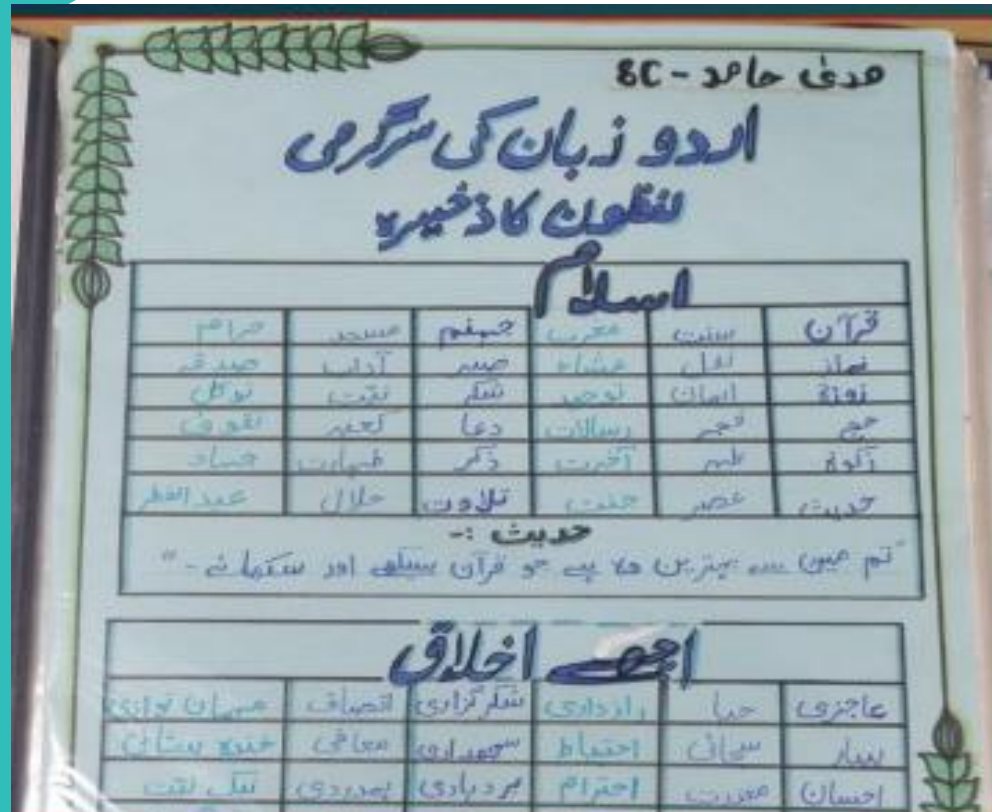 ھدیٰ حامد - 8C
اردو زبان کی سرگرمی
لفظوں کا ذخیرہ
اسلام
قرآن سنت مغرب جہنم مسجد حرام
نماز نفل عشاء صبر آداب صدقہ
روزہ ایمان توحید شکر نیت توکل
حج فجر رسالات دعا تقویٰ
زکوٰۃ ظہر آخرت ذکر طہارت جہاد
حدیث عصر جنت تلاوت حلال عید الفطر
حدیث :-
"تم میں سے بہترین وہ ہے جو قرآن سیکھے اور سکھائے -"
اچھے اخلاق
عاجزی حیا رازداری شکر گزاری انصاف مہمان نوازی
پیار سچائی احتیاط سمجھداری معافی خندہ پیشانی
احسان احترام بردباری ہمدردی نیک نیت